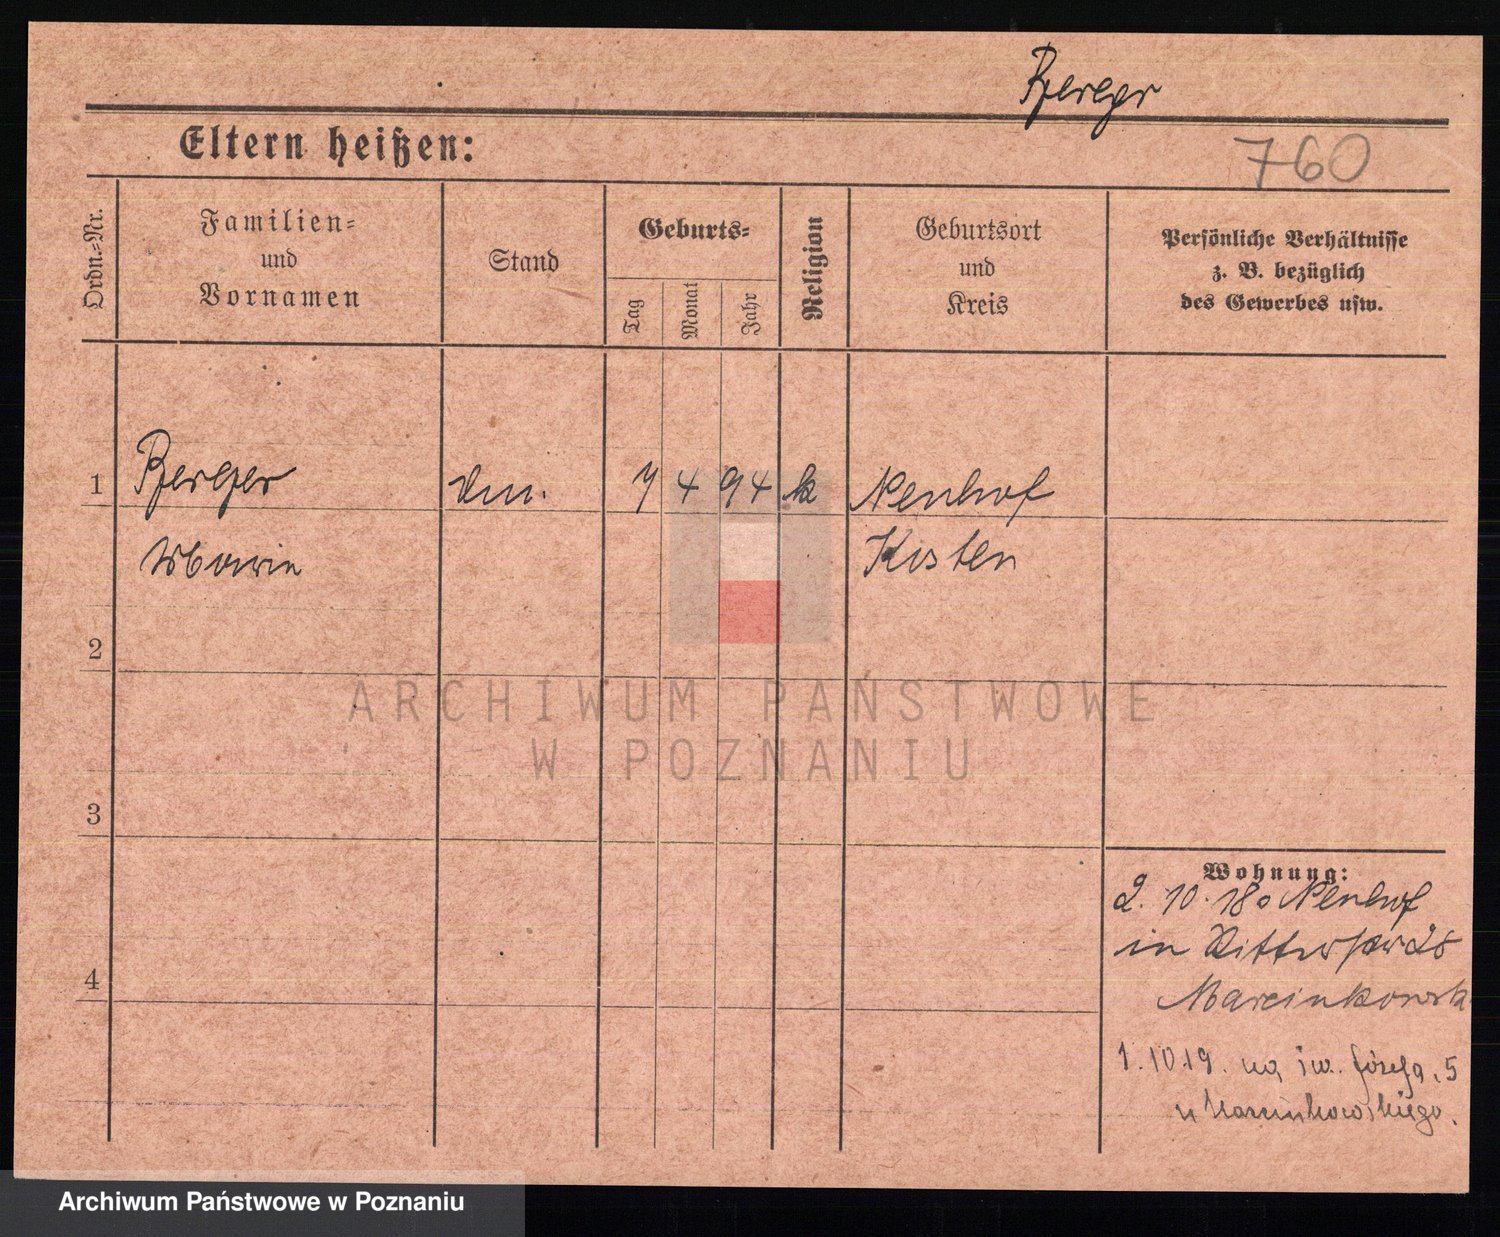 Berger
Eltern heißen:
760
Ordn.=Nr.
Familien=
und
Vornamen
Stand
Geburts=
Tag
Monat
Jahr
Religion
Geburtsort
und
Kreis
Persönliche Verhältnisse
z. B. bezüglich
des Gewerbes usw.
1
Berger
4 94 k
Neuhof
Marie
Kosten
2
ARCHIWUM PAŃSTWOWE
W POZNANIU
3
Wohnung:
2. 10. 18. Neuhof
in
Marcinkowsk
4
1.10 19. na św. Józefa 5
u Marcinkowskiego.
Archiwum Państwowe w Poznaniu